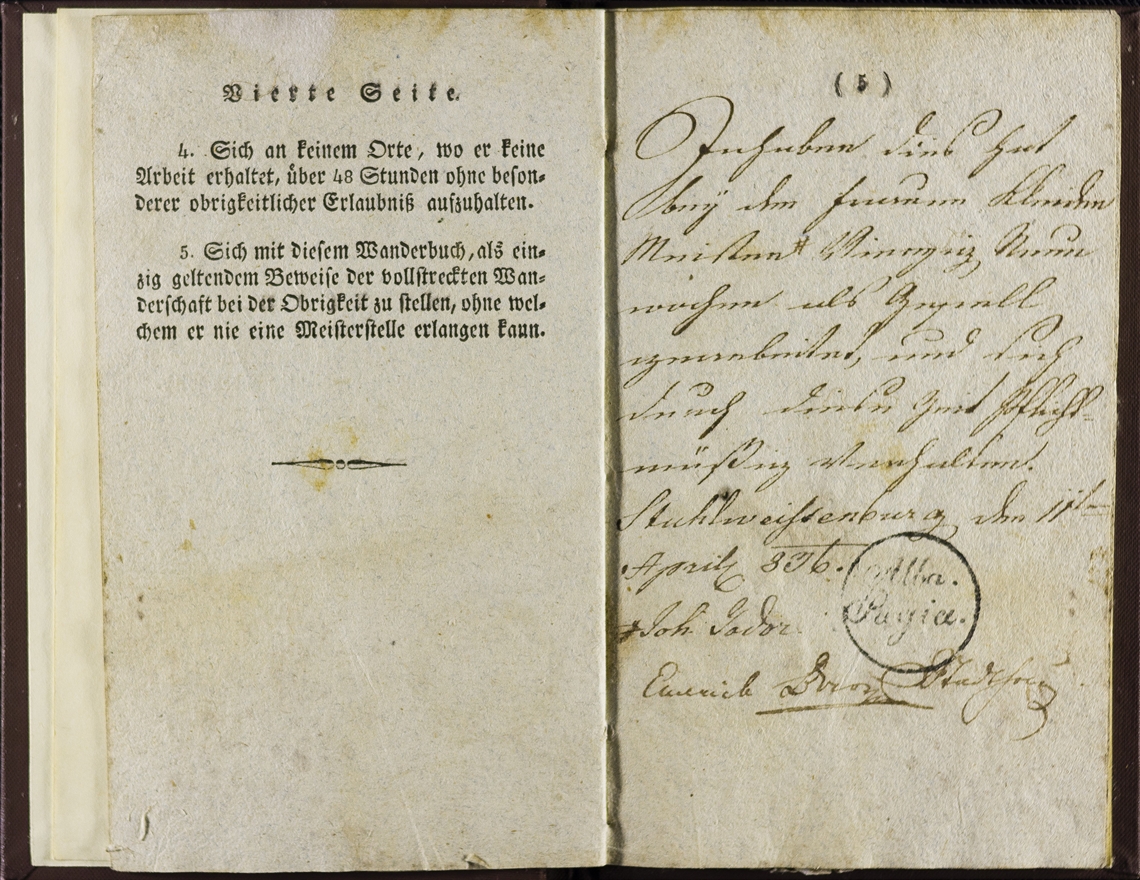 Vierte Seite.
4. Sich an keinem Orte, wo er keine
Arbeit erhaltet, über 48 Stunden ohne beson-
derer obrigkeitlicher Erlaubniß aufzuhalten.
5. Sich mit diesem Wanderbuch, als ein-
zig geltendem Beweise der vollstreckten Wan-
derschaft bei der Obrigkeit zu stellen, ohne wel-
chem er nie eine Meisterstelle erlangen kann.
( 5 )
Inhaber dies hat
bey dem Kleider
Meister Neun
wochen als Gesell
gearbeitet, und sich
durch diese Zeit Pflicht-
mäßig verhalten.
Stuhlweissenburg den 11t
April 836.
Alba.
Regia.
Joh.
Emerich